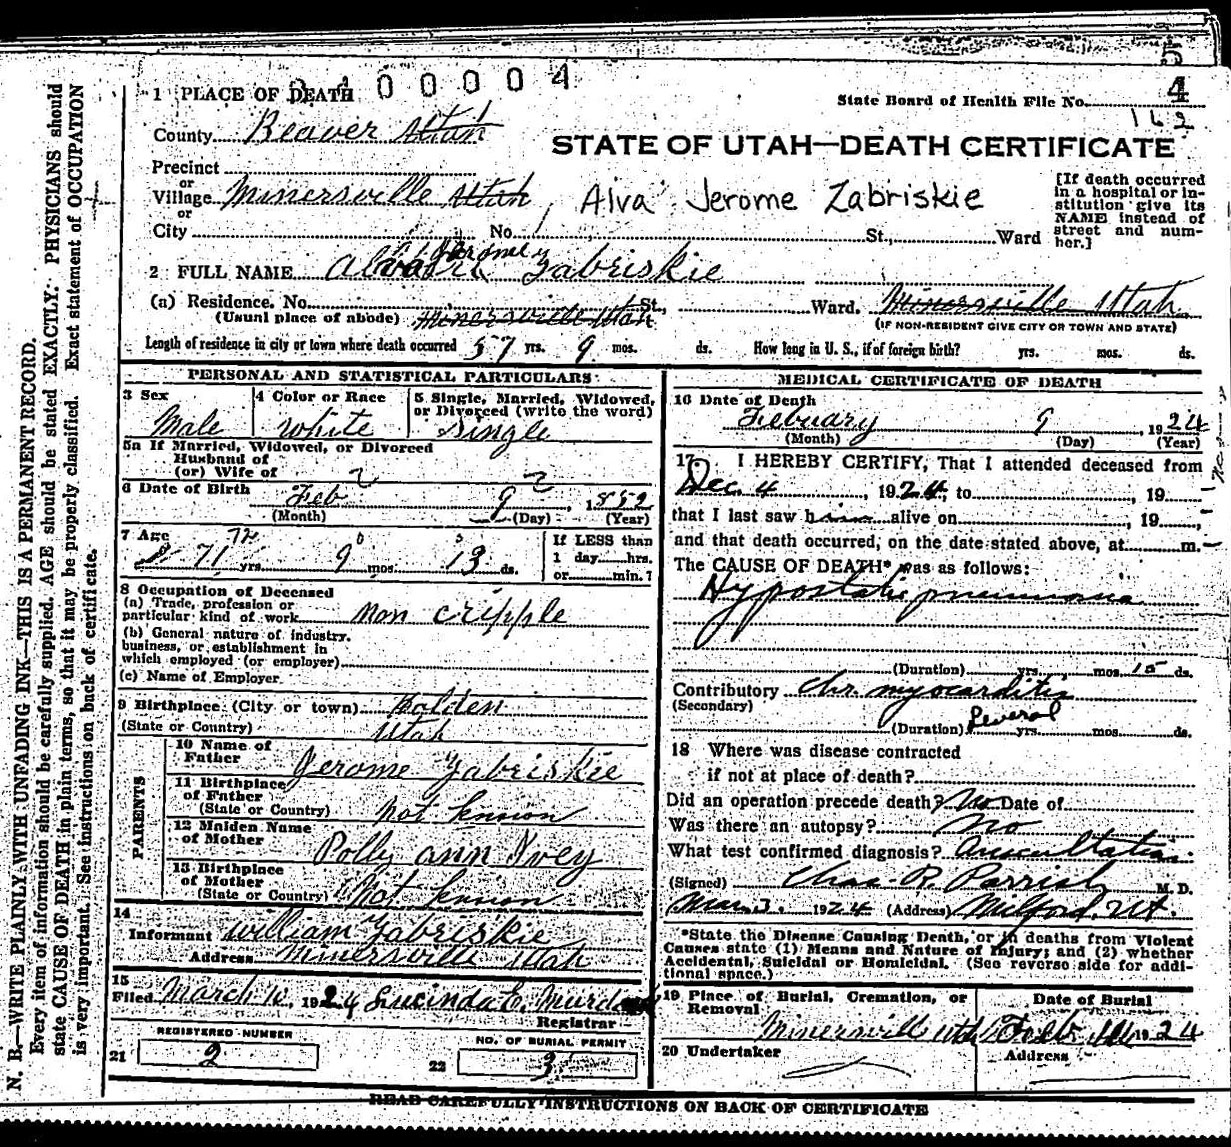 N. B.—WRITE PLAINLY WITH UNFADING INK—THIS IS A PERMANENT RECORD.
Every item of information should be carefully supplied. AGE should be stated EXACTLY. PHYSICIANS should
state CAUSE OF DEATH in plain terms, so that it may be properly classified. Exact statement of OCCUPATION
is very important. See instructions on back of certificate.
5
1 PLACE OF DEATH
00004
State Board of Health File No. 4
162
County Beaver Utah
STATE OF UTAH—DEATH CERTIFICATE
Precinct
or
Village Minersville Utah
Alva Jerome Zabriskie
or
City No. St., Ward
[If death occurred
in a hospital or in-
stitution give its
NAME instead of
street and num-
ber.]
2 FULL NAME Jerome Zabriskie
(a) Residence. No. St., Ward. Minersville Utah
(Usual place of abode) Minersville Utah
(IF NON-RESIDENT GIVE CITY OR TOWN AND STATE)
Length of residence in city or town where death occurred 57 yrs. 9 mos. ds. How long in U. S., if of foreign birth? yrs. mos. ds.
PERSONAL AND STATISTICAL PARTICULARS
3 Sex
Male
4 Color or Race
White
5 Single, Married, Widowed,
or Divorced (write the word)
Single
5a If Married, Widowed, or Divorced
Husband of
(or) Wife of
6 Date of Birth
Feb 9 2, 1852
(Month) (Day) (Year)
7 Age
72 0 0
71 yrs. 9 mos. 13 ds.
If LESS than
1 day hrs.
or min.?
8 Occupation of Deceased
(a) Trade, profession or
particular kind of work non cripple
(b) General nature of industry,
business, or establishment in
which employed (or employer)
(c) Name of Employer
9 Birthplace (City or town) Holden
(State or Country) Utah
PARENTS
10 Name of
Father Jerome Zabriskie
11 Birthplace
of Father
(State or Country) Not known
12 Maiden Name
of Mother Polly ann Ivey
13 Birthplace
of Mother
(State or Country) Not known
14
Informant William Zabriskie
Address Minersville Utah
15
Filed March 10, 1924 Lucinda E. Murdock
Registrar
REGISTERED NUMBER
21 2
NO. OF BURIAL PERMIT
22 3
MEDICAL CERTIFICATE OF DEATH
16 Date of Death
Febuary 9, 1924
(Month) (Day) (Year)
17 I HEREBY CERTIFY, That I attended deceased from
Dec. 4, 1924, to , 19
that I last saw him alive on , 19 ,
and that death occurred, on the date stated above, at m.
The CAUSE OF DEATH* was as follows:
Hypostatic pneumonia
(Duration) yrs. mos. 15 ds.
Contributory Chr. myocarditis
(Secondary)
(Duration) Several yrs. mos. ds.
18 Where was disease contracted
if not at place of death?
Did an operation precede death? No Date of
Was there an autopsy? No
What test confirmed diagnosis? Auscultation
(Signed) Chas. R. Parrish M. D.
Mar. 3. 1924 (Address) Milford, Ut.
*State the Disease Causing Death, or in deaths from Violent
Causes state (1) Means and Nature of Injury; and (2) whether
Accidental, Suicidal or Homicidal. (See reverse side for addi-
tional space.)
19 Place of Burial, Cremation, or
Removal
Minersvill Utah
Date of Burial
Feb 1924
20 Undertaker
Address
READ CAREFULLY INSTRUCTIONS ON BACK OF CERTIFICATE